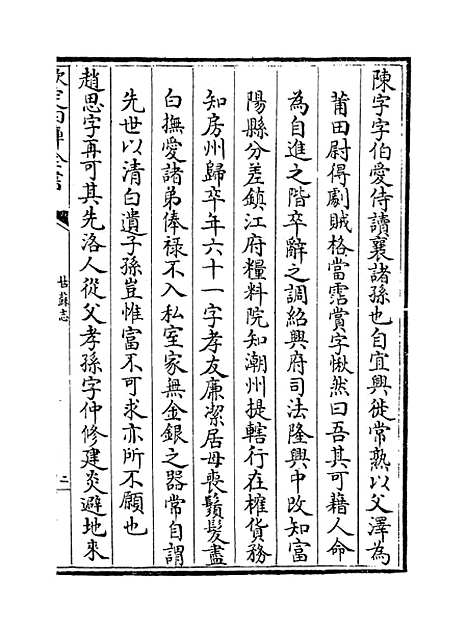 陳字字伯愛侍讀襄諸孫也自宜興徙常熟以父澤為
莆田尉得劇賊格當霑賞字愀然曰吾其可藉人命
為自進之階卒辭之調紹興府司法隆興中改知富
陽縣分差鎮江府糧料院知潮州提轄行在榷貨務
知房州歸卒年六十一字孝友廉潔居母喪鬚髮盡
白撫愛諸弟俸祿不入私室家無金銀之器常自謂
先世以清白遺子孫豈惟富不可求亦所不願也
趙思字再可其先洛人從父孝孫字仲修建炎避地來
欽定四庫全書
姑蘇志
二